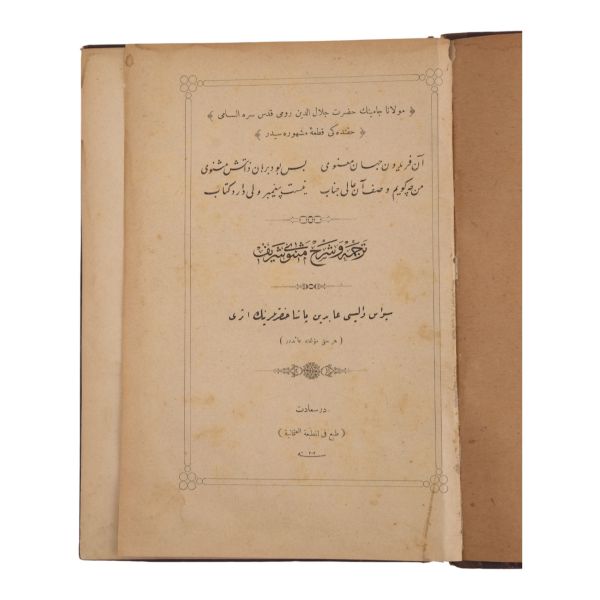 ﴿ مولانا جامينك حضرت جلال الدين رومى قدس سره السامى ﴾
﴿ حقنده كى قطعهٔ مشهوره سيدر ﴾
آن فريدون جهان معنوى بس بود برهان ذاتش مثنوى
من چه گويم وصف آن عالى جناب نيست پيغمبر ولى دارد كتاب
ترجمه و شرح مثنوى شريف
سيواس واليسى عابدين پاشا حضرتلرينك اثرى
( هر حق مؤلفه عائددر )
درسعادت
( طبع فى المطبعة العثمانية )